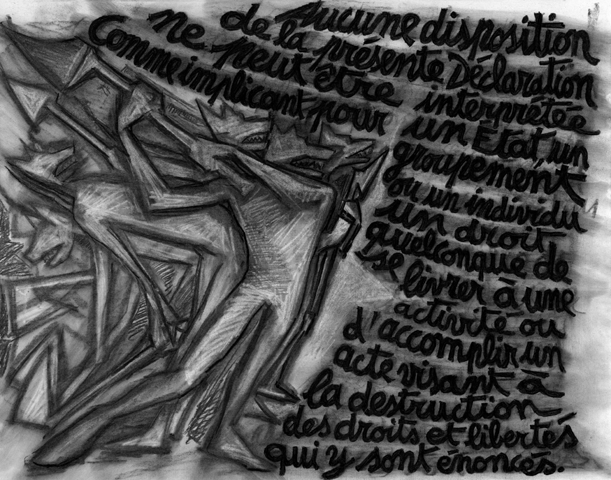 Aucune disposition
de la présente Déclaration
ne peut être interprétée
comme impliquant pour un État un
groupement
ou un individu
un droit
quelconque de
se livrer à une
activité ou
d'accomplir un
acte visant à
la destruction
des droits et libertés
qui y sont énoncés.